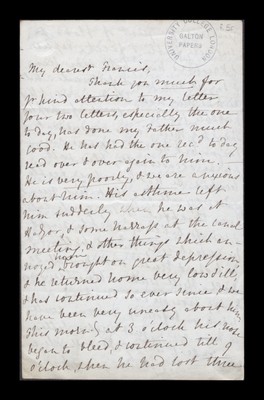 UNIVERSITY COLLEGE LONDON
GALTON
PAPERS
My dearest Francis,
Thank you much for
yr kind attention to my letter
your two letters, especially the one
to day, has done my Father much
good. He has had the one recd to day
read over & over again to him.
He is very poorly, & we are anxious
about him. His asthma left
him suddenly when he was at
Hadzor, & some harrass at the canal
meeting, & other things which an-
noyed him, brought on great depression
& he returned home very low & ill,
& has continued so ever since & we
have been very uneasy about him
This morning at 3 o'clock his nose
began to bleed, & continued till 9
o'clock, when he had lost three